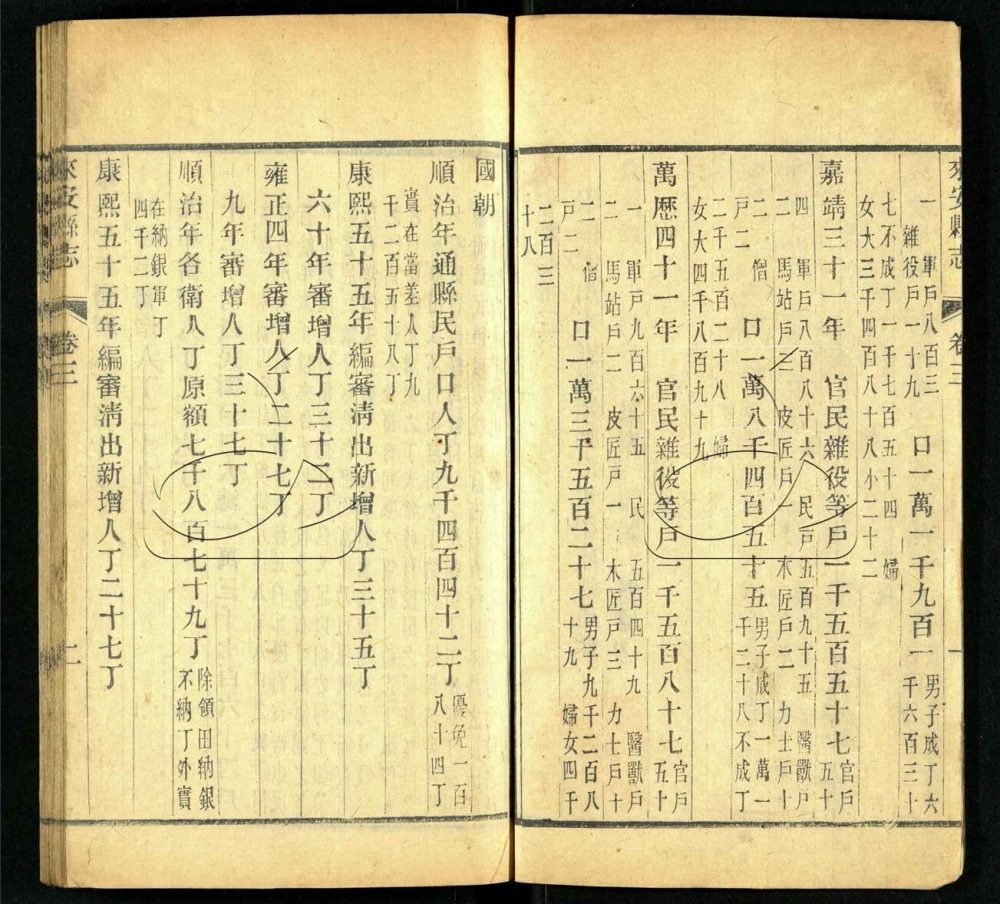 來安縣志 卷三 一
一 軍戶八百三
雜役戶一十九
口一萬一千九百一
男子成丁六
千六百三十
七不成丁一千七百五十四 婦
女大三千四百八十八小二十二
嘉靖三十一年 官民雜役等戶一千五百五十七
官戶
五十
四 軍戶八百八十六 民戶五百九十五 醫獸戶
二 馬站戶三 皮匠戶一 木匠戶二 力士戶十
二 僧
戶二
口一萬八千四百五十五
男子成丁一萬一
千二十八不成丁
二千五百二十八 婦
女大四千八百九十九
萬歷四十一年 官民雜役等戶一千五百八十七
官戶
五十
一 軍戶九百六十五 民 五百四十九 醫獸戶
二 馬站戶二 皮匠戶一 木匠戶三 力士戶十
二 僧
戶二
口一萬三千五百二十七
男子九千二百八
十九 婦女四千
二百三
十八
國朝
順治年通縣民戶口人丁九千四百四十二丁
優免一百
八十四丁
實在當差人丁九
千二百五十八丁
康熙五十五年編審淸出新增人丁三十五丁
六十年審增人丁三十二丁
雍正四年審增人丁二十七丁
九年審增人丁三十七丁
順治年各衛人丁原額七千八百七十九丁
除領田納銀
不納丁外實
在納銀軍丁
四千二丁
康熙五十五年編審淸出新增人丁二十七丁
來安縣志 卷三 二